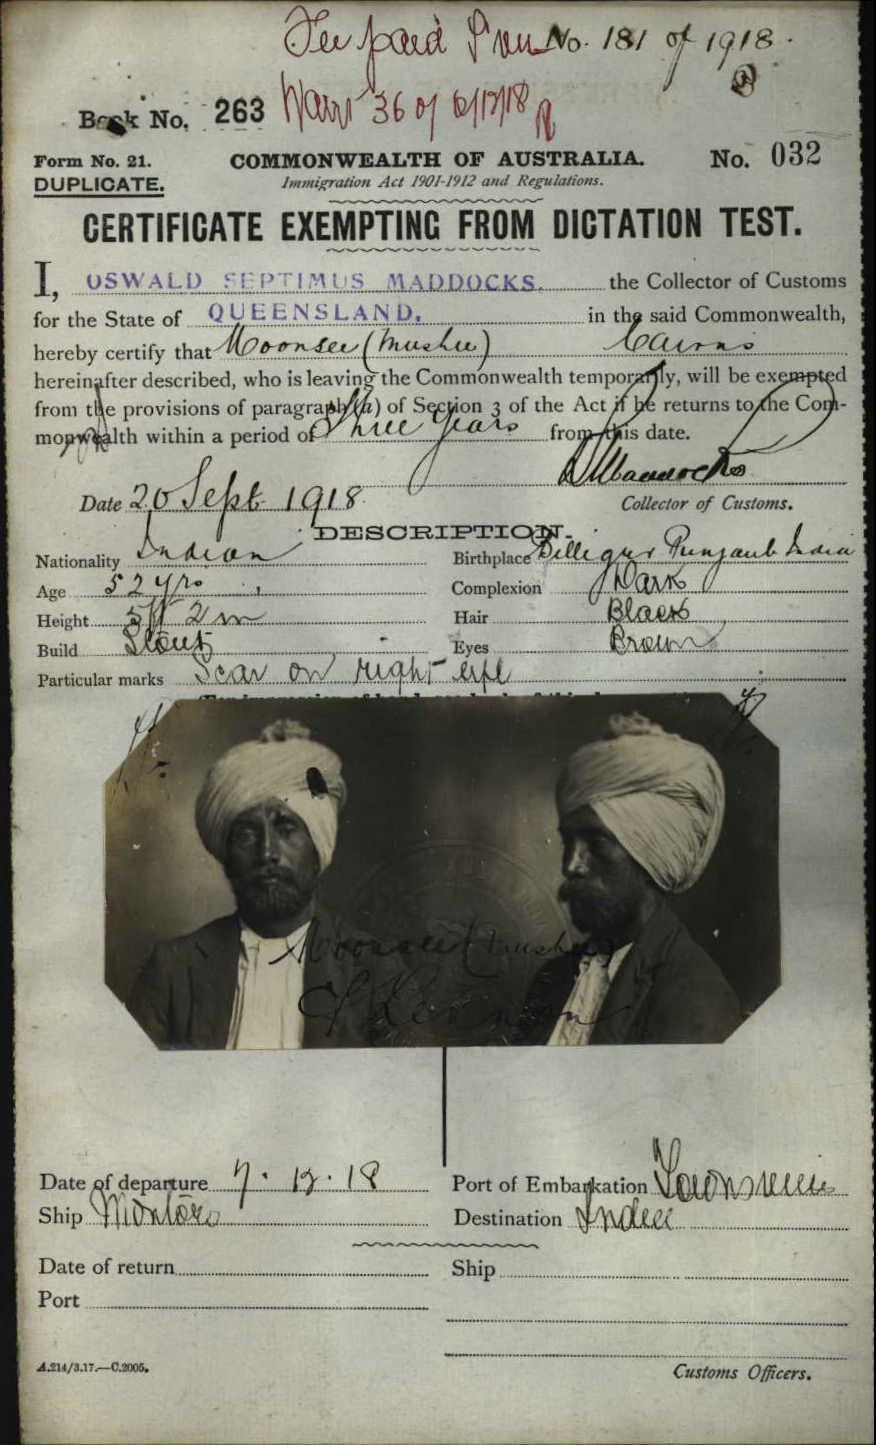 Fee paid No. 181 of 1918.
Book No. 263 36 of 6/12/18
Form No. 21. COMMONWEALTH OF AUSTRALIA. No. 032
DUPLICATE. Immigration Act 1901-1912 and Regulations.
CERTIFICATE EXEMPTING FROM DICTATION TEST.
I, OSWALD SEPTIMUS MADDOCKS. the Collector of Customs
for the State of QUEENSLAND, in the said Commonwealth,
hereby certify that Moonsee (Mushee) Cairns
hereinafter described, who is leaving the Commonwealth temporarily, will be exempted
from the provisions of paragraph (a) of Section 3 of the Act if he returns to the Com-
monwealth within a period of Three Years from this date.
Date 20 Sept 1918 Collector of Customs.
DESCRIPTION.
Nationality Indian Birthplace Punjaub India
Age 52 yrs Complexion Dark
Height 5 ft 2 in Hair Black
Build Stout Eyes Brown
Particular marks Scar on right
Moonsee (Mushee)
Date of departure 7.12.18 Port of Embarkation Townsville
Ship Montoro Destination India
Date of return Ship
Port
A.214/3.17.—C.2005. Customs Officers.